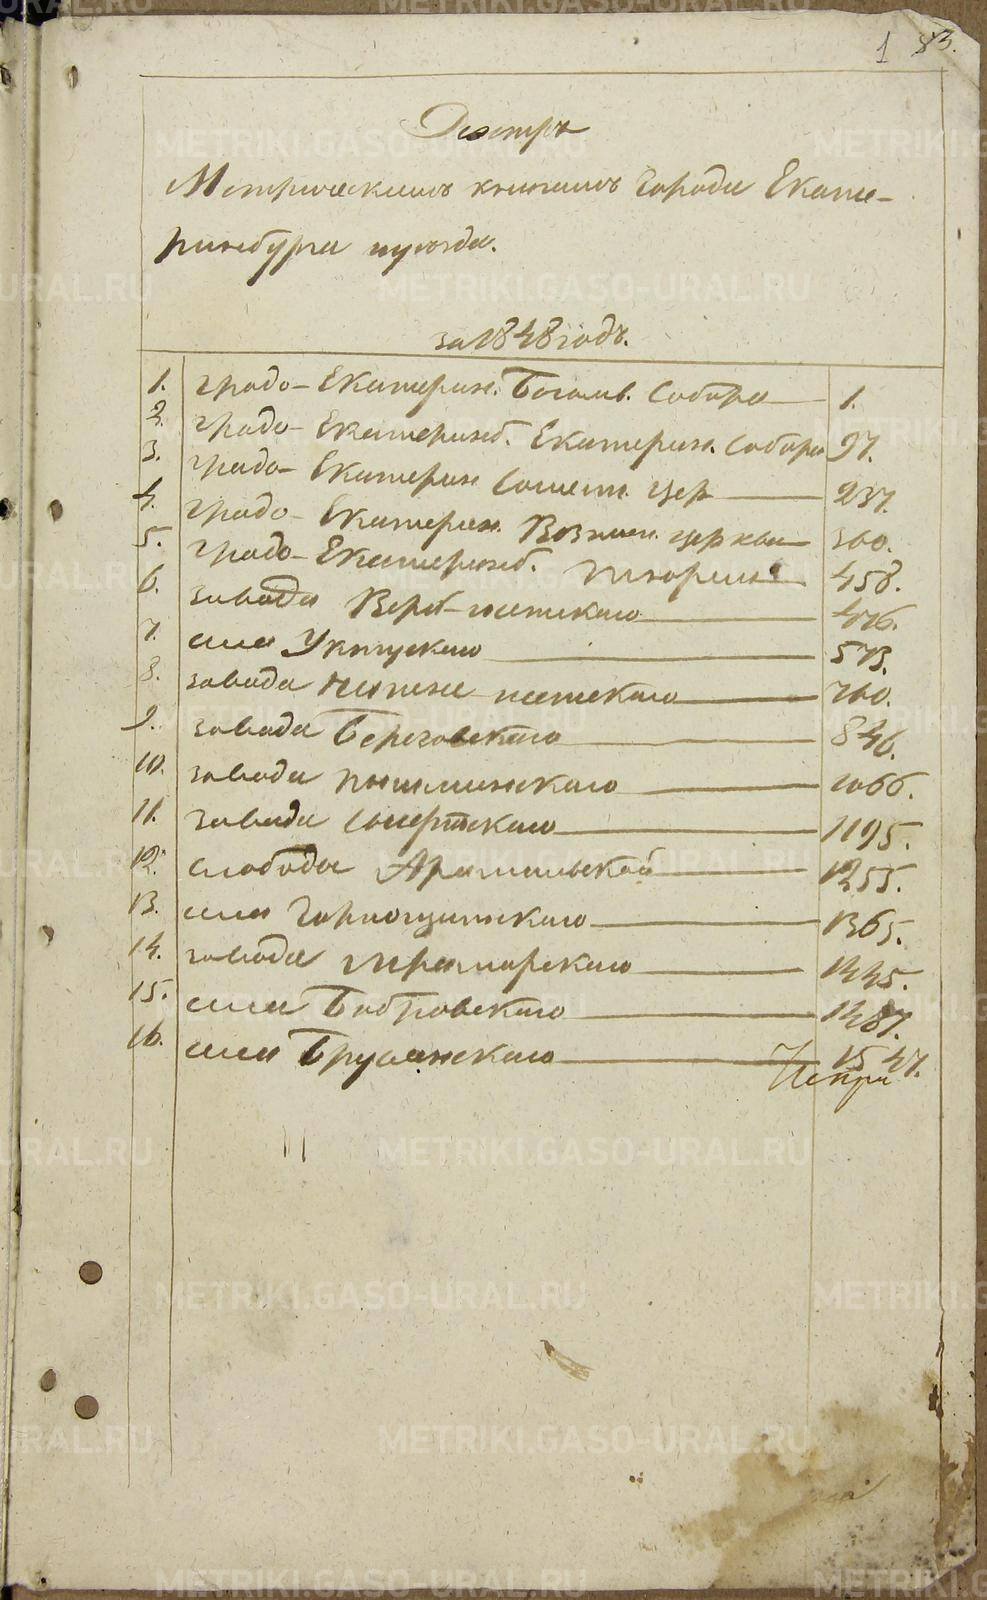 1 83.
Реэстръ
Метрическимъ книгамъ города Екате-
ринбурга и уезда.
за 1848 годъ.
1. градо-Екатерин. Богояв. Собора 1.
2. градо-Екатеринб. Екатерин. Собора 97.
3. градо-Екатерин Сошест. цер 237.
4. градо-Екатерин. Вознес. церкви 360.
5. градо-Екатеринб. 458.
6. завода Верх-исетскаго 476.
7. села Уктусскаго 573.
8. завода Нижне исетскаго 760.
9. завода Березовскаго 846.
10. завода пышминскаго 1066.
11. завода Сысертскаго 1195.
12. слободы Арамильской 1255.
13. села Горнощитскаго 1365.
14. завода мраморскаго 1445.
15. села Бобровскаго 1487.
16. села Брусянскаго 1547.
METRIKI.GASO-URAL.RU